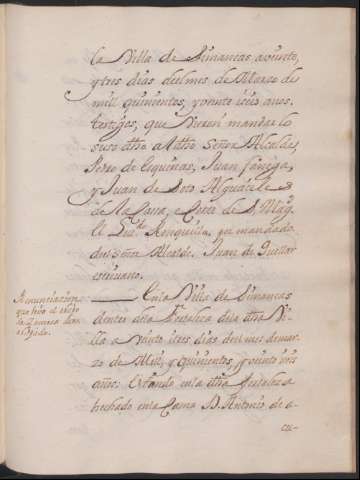 la Villa de Simancas, a veinte,
y tres dias del mes de Marzo de
mill quinientos, y veinte i seis años.
testigos, que vieron mandar lo
suso dtho al dtho Señor Alcalde,
Pedro de Esquinas, Juan
y Juan de Soto Alguaciles
de la Carz, e Corte de S. Mag.
El Lizdo Ronquillo, por mandado
del señor Alcalde. Juan de Cuellar
escrivano.
Enunciacion
que hizo el
de
En la Villa de Simancas
dentro en la Fortaleza de la dtha Vi-
lla a veinte i tres dias del mes de mar-
zo de Mill, y quinientos, y veinte i seis
años. Estando en la dtha fortaleza
hechado en la Cama D. Antonio de a-
cu-